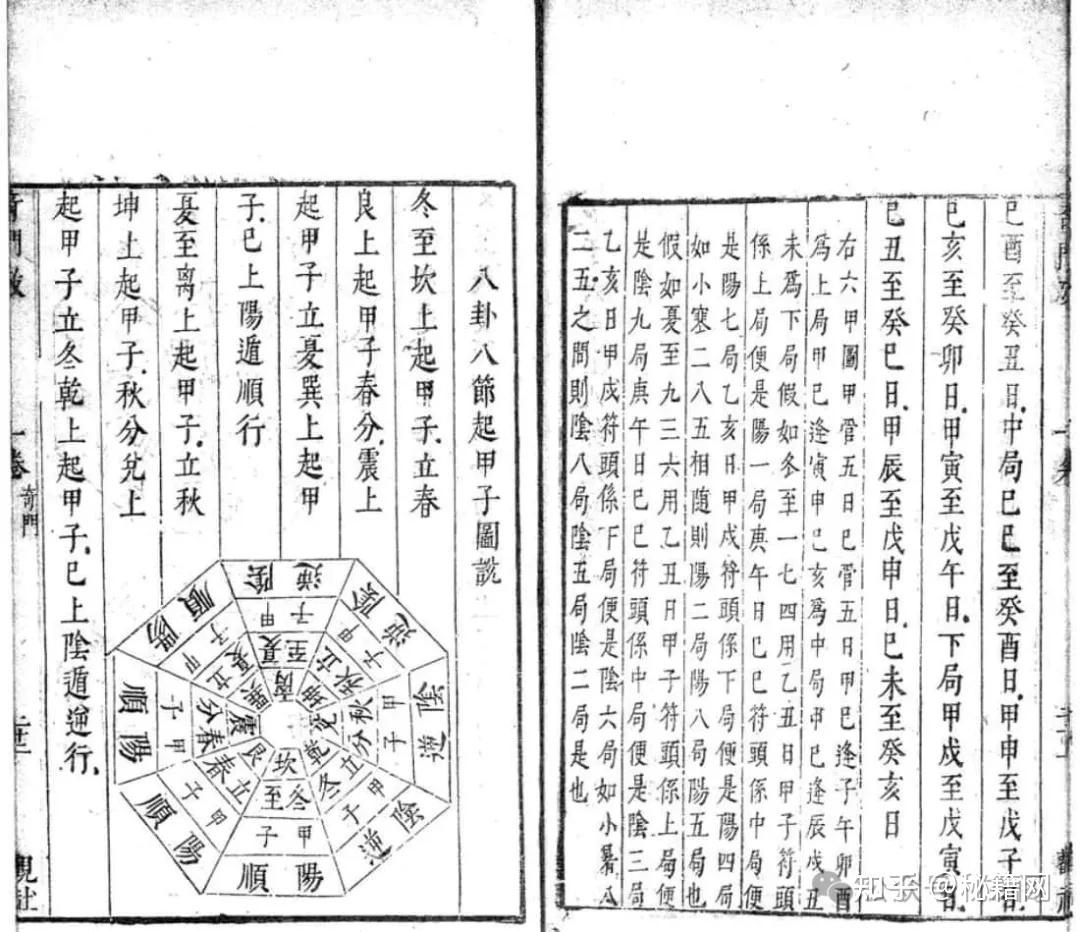 己酉至癸丑日、中局己巳至癸酉日、甲申至戊子日、
己亥至癸卯日、甲寅至戊午日、下局甲戌至戊寅日、
己丑至癸巳日、甲辰至戊申日、己未至癸亥日
右六甲圖甲管五日己管五日甲己逢子午卯酉
為上局甲己逢寅申巳亥為中局甲己逢辰戌丑
未為下局假如冬至一七四用乙丑日甲子符頭
係上局便是陽一局庚午日己巳符頭係中局便
是陽七局乙亥日甲戌符頭係下局便是陽四局
如小寒二八五相隨則陽二局陽八局陽五局也
假如夏至九三六用乙丑日甲子符頭係上局便
是陰九局庚午日己巳符頭係中局便是陰三局
乙亥日甲戌符頭係下局便是陰六局如小暑八
二五之間則陰八局陰五局陰二局是也
八卦八節起甲子圖說
冬至坎上起甲子、立春
艮上起甲子春分、震上
起甲子立夏巽上起甲
子、已上陽遁順行
夏至離上起甲子、立秋
坤上起甲子、秋分兌上
起甲子立冬乾上起甲子、已上陰遁逆行、
一卷
奇門
坎
冬至
甲子
陽順
艮
立春
甲子
陽順
震
春分
甲子
陽順
巽
立夏
甲子
陽順
夏至
甲子
陰逆
坤
立秋
甲子
陰逆
兌
秋分
甲子
陰逆
乾
立冬
甲子
陰逆
知乎 @秘籍网